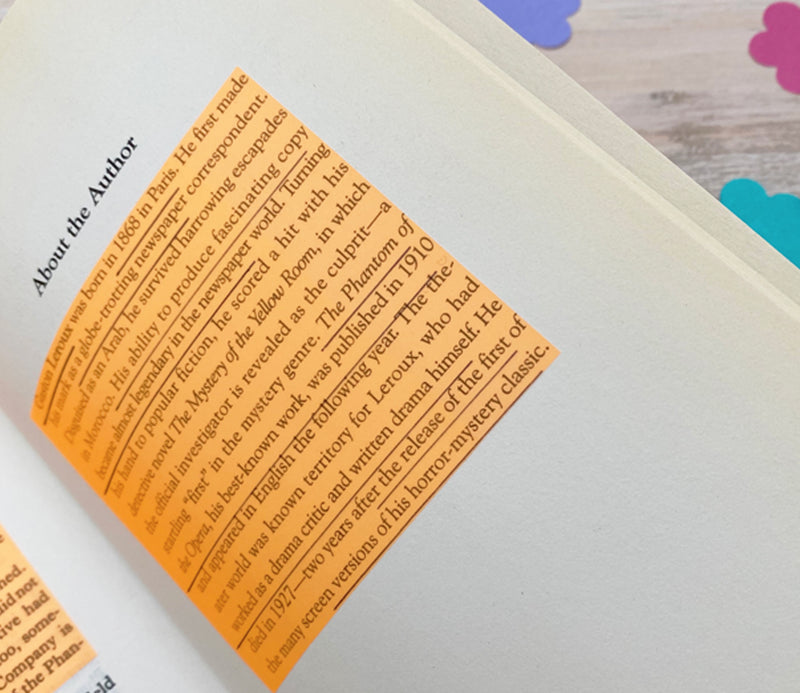 About the Author
Gaston Leroux was born in 1868 in Paris. He first made
his mark as a globe-trotting newspaper correspondent.
Disguised as an Arab, he survived harrowing escapades
in Morocco. His ability to produce fascinating copy
became almost legendary in the newspaper world. Turning
his hand to popular fiction, he scored a hit with his
detective novel The Mystery of the Yellow Room, in which
the official investigator is revealed as the culprit—a
startling "first" in the mystery genre. The Phantom of
the Opera, his best-known work, was published in 1910
and appeared in English the following year. The the-
ater world was known territory for Leroux, who had
worked as a drama critic and written drama himself. He
died in 1927—two years after the release of the first of
the many screen versions of his horror-mystery classic.
did not
had
too, some-
Company is
the Phan-